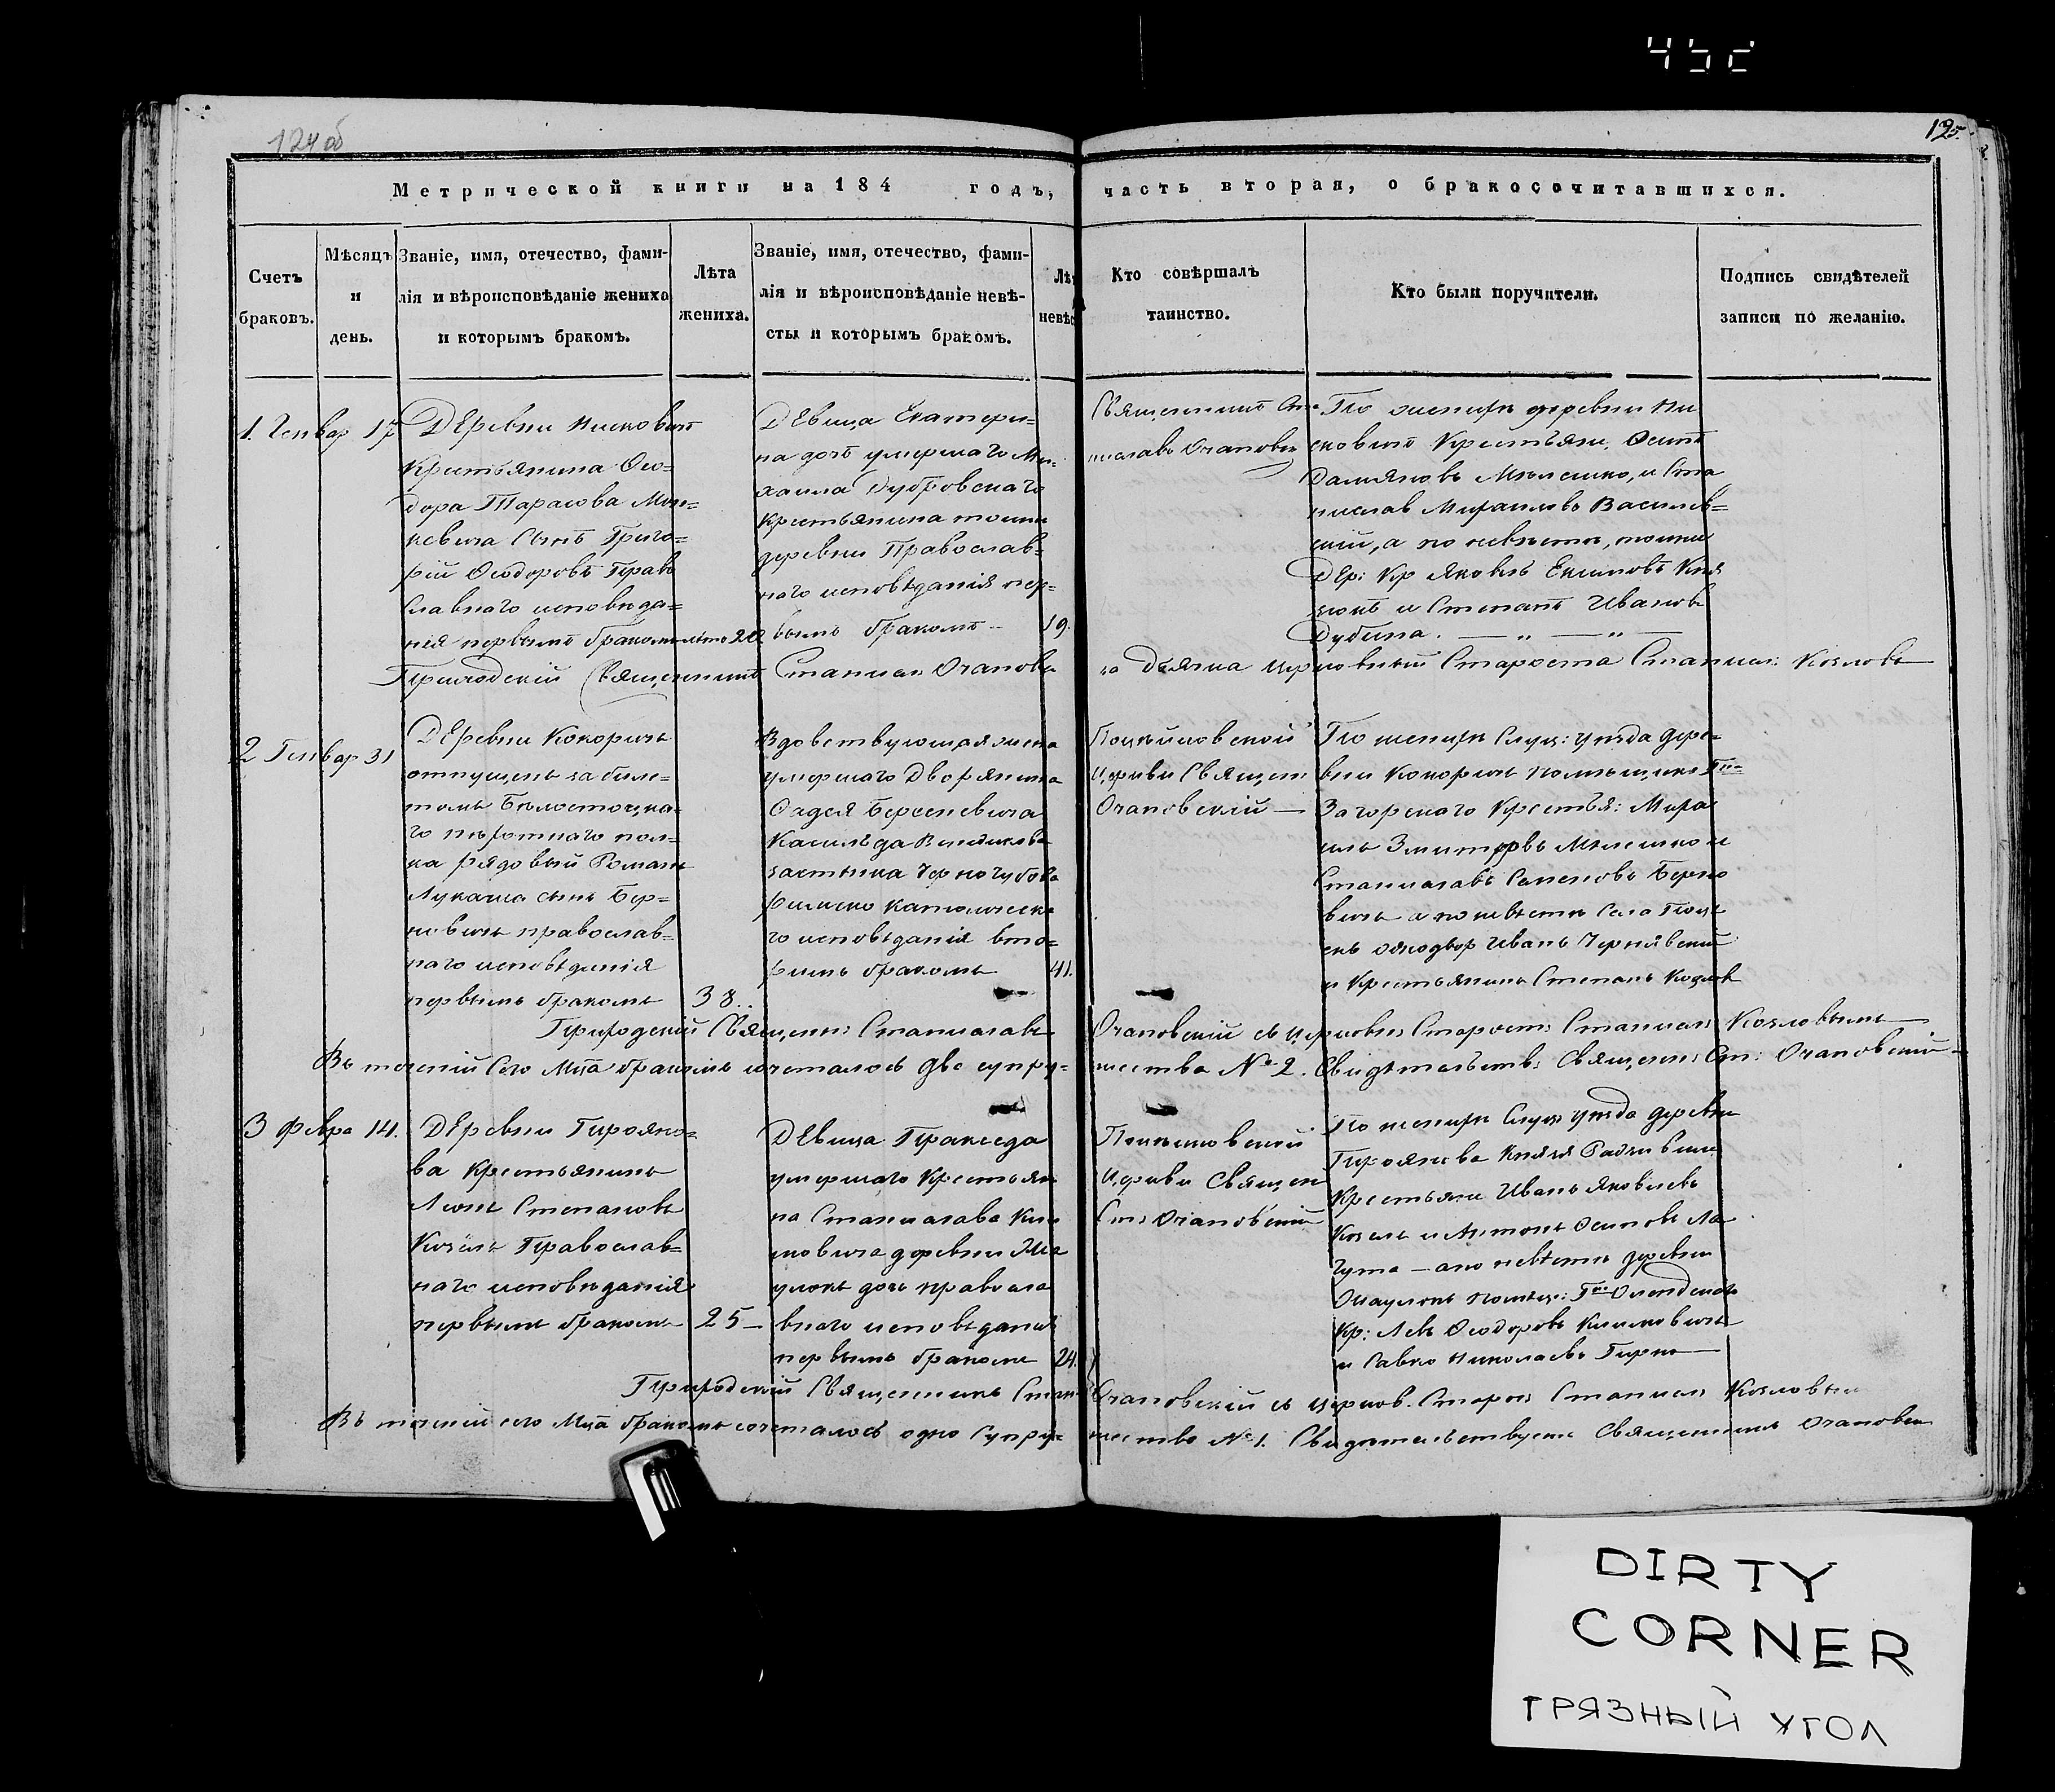 452
124об
125.
Метрической книги на 184 годъ, часть вторая, о бракосочитавшихся.
Счетъ браковъ.
Мѣсяцъ и день.
Званіе, имя, отечество, фами-
лія и вѣроисповѣданіе жениха
и которымъ бракомъ.
Лѣта
жениха.
Званіе, имя, отечество, фами-
лія и вѣроисповѣданіе невѣ-
сты и которымъ бракомъ.
Лѣ
невѣс
Кто совѣршалъ
таинство.
Кто были поручители.
Подпись свидѣтелей
записи по желанію.
1. Генвар 17
Деревни
Крестьянина Ѳео-
дора Тарасова Мин-
кевича сынъ Григо-
рій Ѳеодоровъ Право
славнаго исповѣда-
нія первымъ бракомъ лѣтъ 20.
Девица Екатери-
на дочь умершаго Ми-
хаила Дубровскаго
крестьянина тоиже
деревни Православ-
наго исповѣданія пер-
вымъ бракомъ
19.
Священникъ Ста
ниславъ Очановск
По женихѣ деревни
Крестьяни, Осипъ
Дамяновъ и Ста
ниславъ Михаиловъ Василев=
скій, а по невѣсте, тоиже
Дер: Кр Яковъ Екимовъ
и Степанъ Ивановъ
Дубина. — „ — „ —
Приходскій Священникъ Станисл Очановск
за Дьячка церковный Староста Станисл: Козловъ
2 Генвар 31
Деревни Кокоричъ
отпущенъ за биле-
томъ Бѣлостоцка-
го пѣхотнаго пол-
ка рядовый Романъ
Лукаша сынъ Бер-
новичъ православ-
наго исповѣданія
первымъ бракомъ
38..
Вдовствующая жена
умершаго Дворянина
Фадея
застѣнка
римско католическа
го исповѣданія вто-
рымъ бракомъ
41.
Церкви Священ
Очановскій —
По женихѣ Слуц: уѣзда дере-
вни Кокоричъ помѣщика Гна
Загорскаго Крестья: Миха
илъ Змитровъ и
Станиславъ Семеновъ Берно
вичъ а по невѣсте Села
однодвор Иванъ Чернявскій
и Крестьянинъ Степанъ Козловъ
Приходскій Священ: Станиславъ Очановскій съ церковн: Старост: Станисл: Козловымъ
Въ теченіи Сего Мца бракомъ сочеталось две супру-
жества № 2. Свидѣтельств: Священ: Ст: Очановскій
3 Февра 14.
Деревни
ва Крестьянинъ
Степановъ
Козелъ Православ-
наго исповѣданія
первымъ бракомъ
25 —
Девица Пракседа
умершаго Крестьяни
на Станислава Кли
мовича деревни
дочь правосла
внаго исповѣданія
первымъ бракомъ
24.
Церкви Священ
Ст: Очановскій
По женихѣ Слуц: уѣзда деревни
Князя Радзивила
Крестьяни Иванъ Яковлевъ
Козелъ и Антонъ Осиповъ Ла
гута — а по невѣсте деревни
помѣщ: Гна
Кр: Левъ Ѳеодоровъ Климовичъ
и Савко Николаевъ
Приходскій Священникъ Стан: Очановскій съ церков. Старос: Станисл: Козловым
Въ теченіи сего Мца бракомъ сочеталось одно Супру-
жество № 1. Свидѣтельствуетъ Священникъ Очановск
DIRTY
CORNER
ГРЯЗНЫЙ УГОЛ